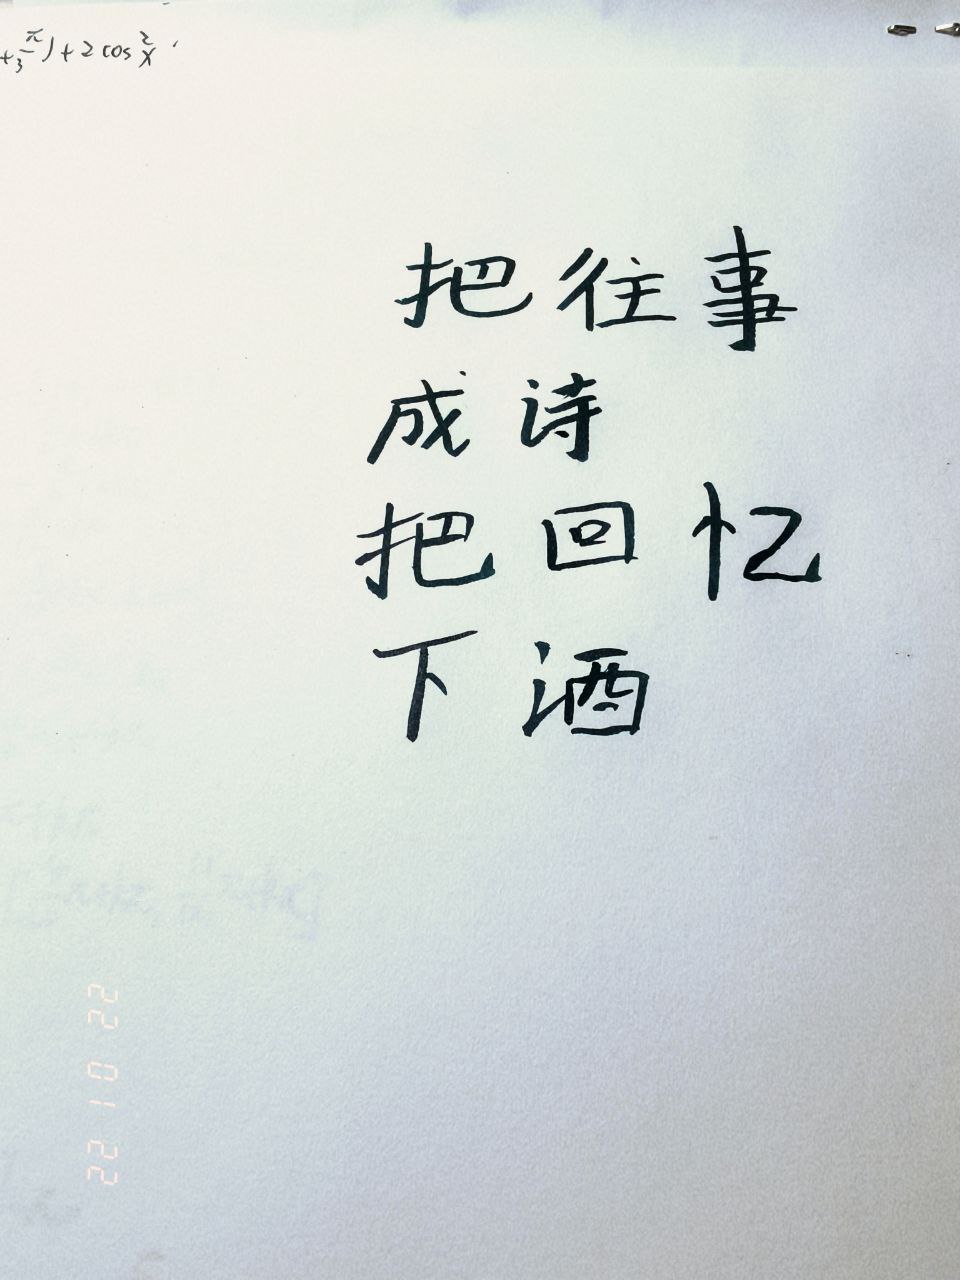 +π/3)+2cos²x
把往事
成诗
把回忆
下酒
22 10 22